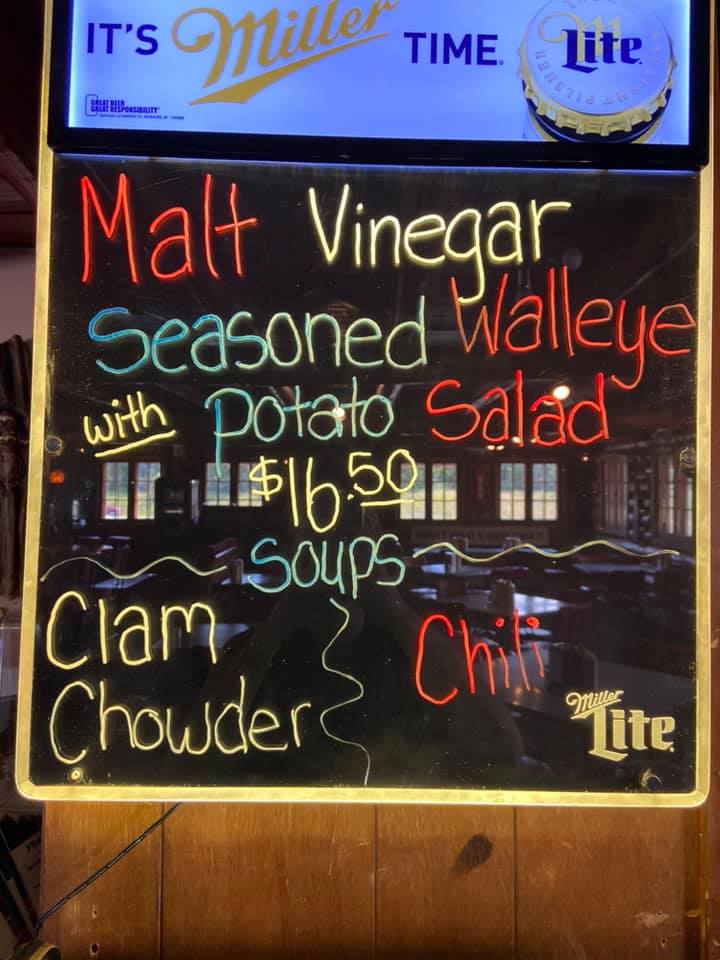 IT'S Miller TIME.
Lite
GREAT BEER
GREAT RESPONSIBILITY
Malt Vinegar
Seasoned Walleye
with Potato Salad
$16.50
Soups
Clam Chili
Chowder
Miller
Lite